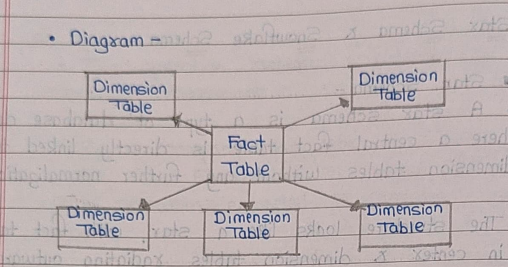 • Diagram -
Dimension
Table
Dimension
Table
Fact
Table
Dimension
Table
Dimension
Table
Dimension
Table